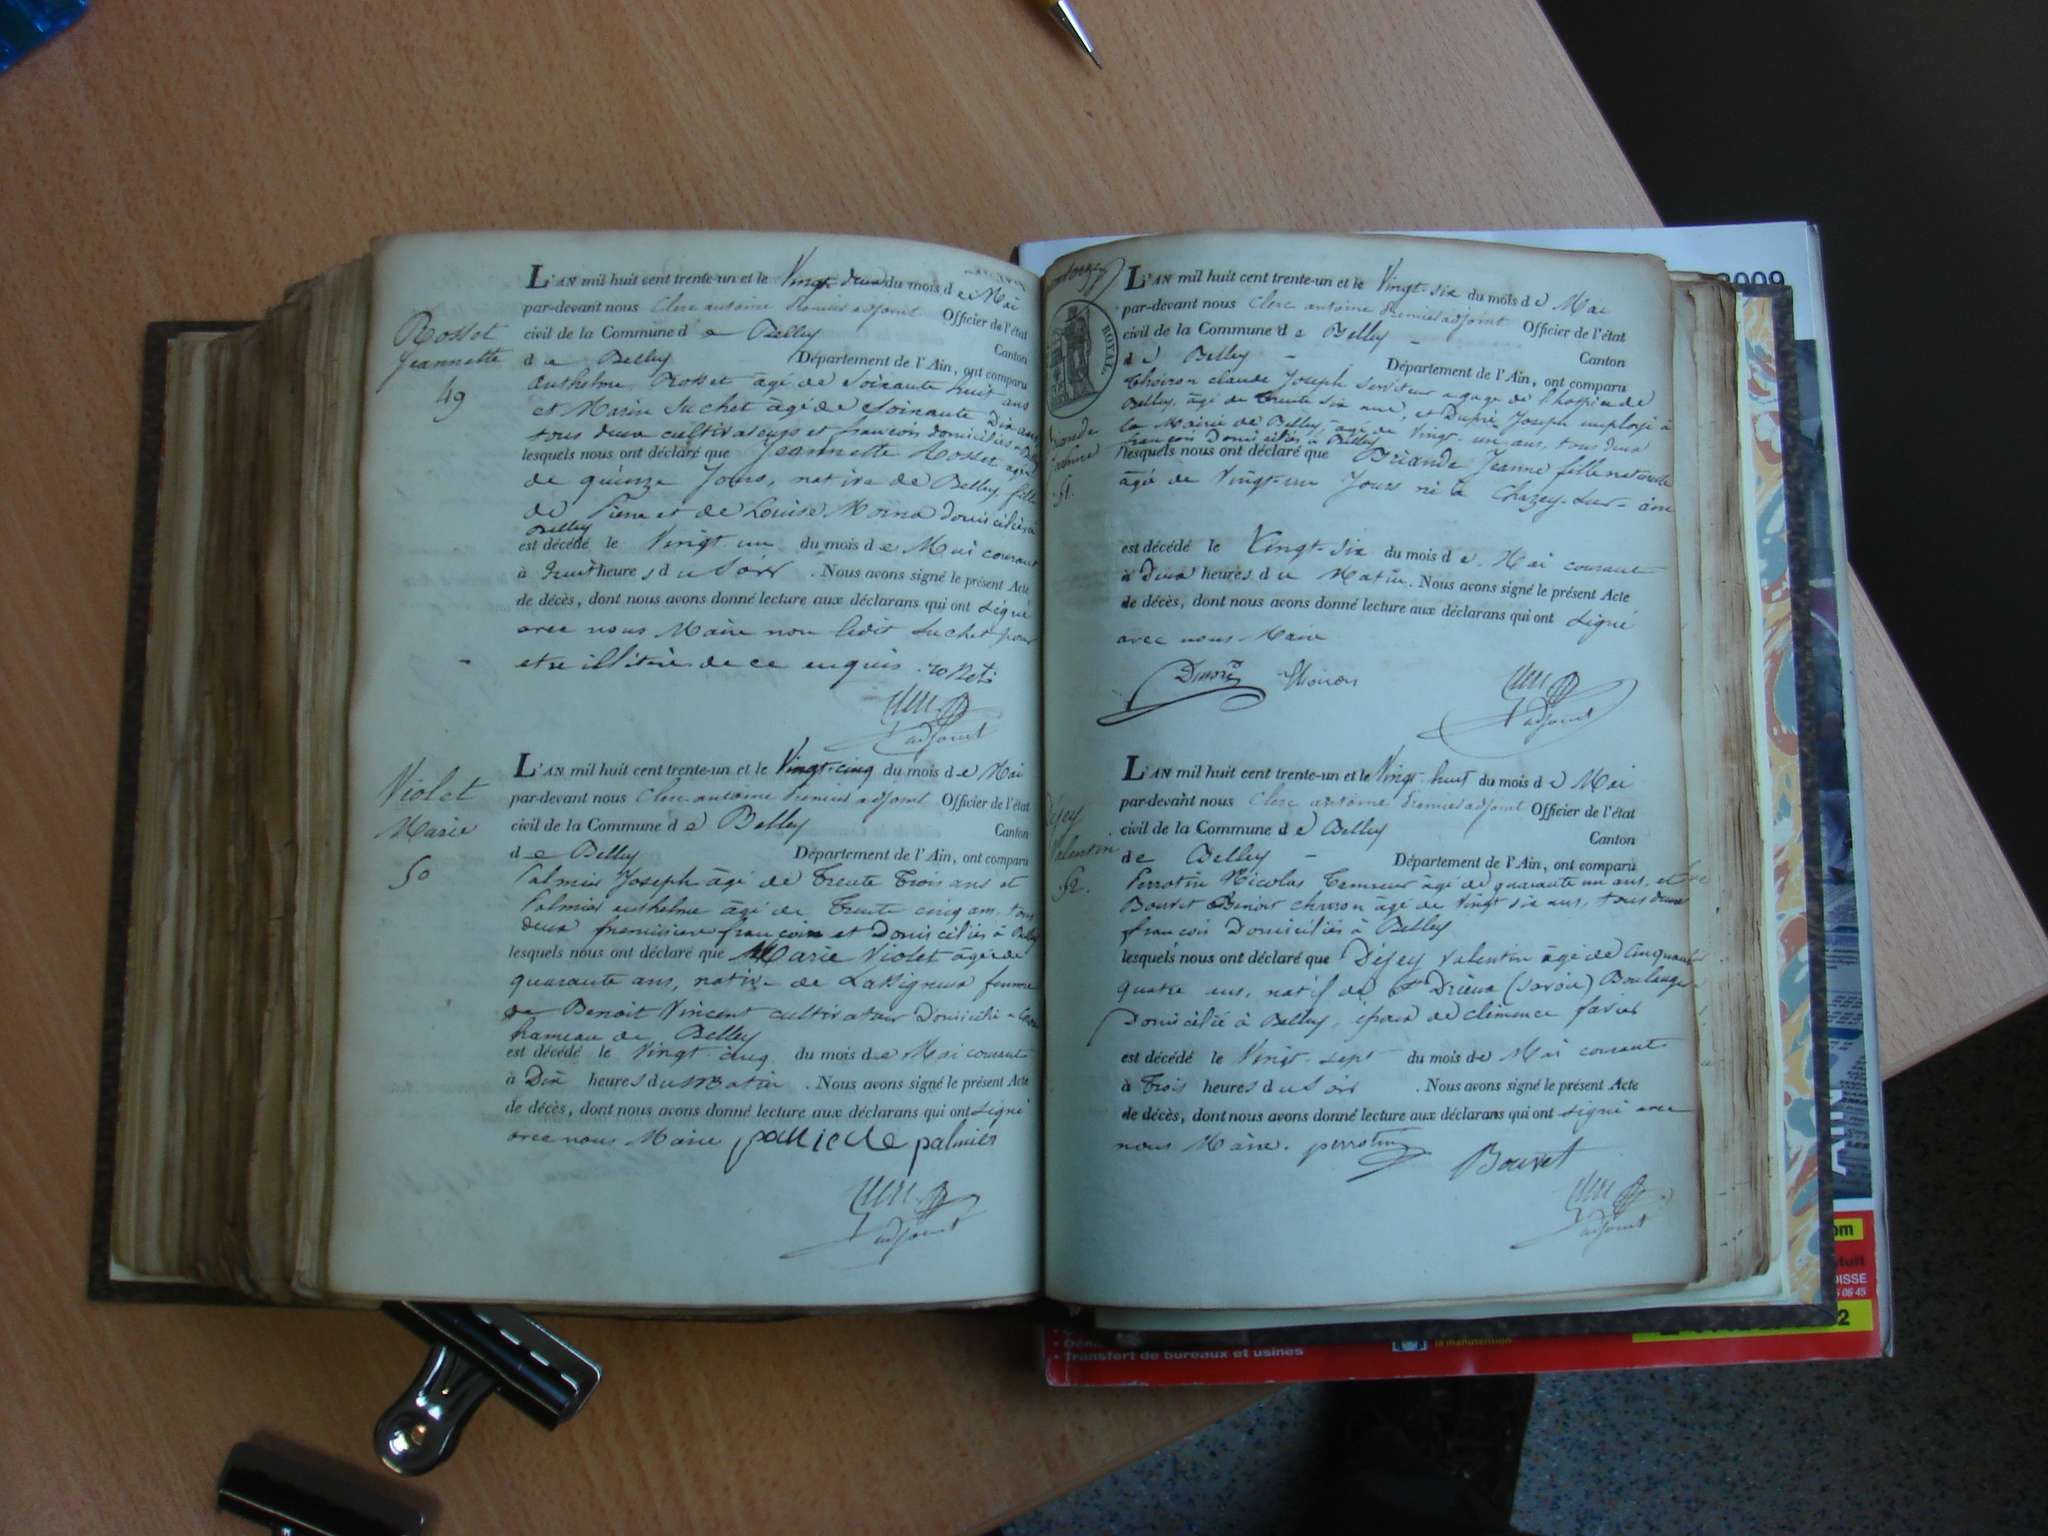 Rosset
Jeannette
49
L'AN mil huit cent trente-un et le Vingt deux du mois de Mai
par-devant nous Clerc antoine Premier adjoint Officier de l'état
civil de la Commune de Belley Canton
de Belley Département de l'Ain, ont comparu
Anthelme Rosset âgé de Soixante huit ans
et Marin Suchet âgé de Soixante Dix ans
tous deux cultivateurs et francois domiciliés a Belley
lesquels nous ont déclaré que Jeannette Rosset agée
de quinze Jours, native de Belley fille
de Pierre et de Louise Moina Domiciliés à
Belley
est décédé le Vingt un du mois de Mai courant
à huit heures du Soir. Nous avons signé le présent Acte
de décès, dont nous avons donné lecture aux déclarans qui ont signé
avec nous Maire non ledit Suchet pour
etre illitéré de ce enquis. roseti
adjoint
Violet
Marie
50
L'AN mil huit cent trente-un et le Vingt-cinq du mois de Mai
par-devant nous Clerc antoine Premier adjoint Officier de l'état
civil de la Commune de Belley Canton
de Belley Département de l'Ain, ont comparu
Palmier Joseph âgé de Trente Trois ans et
Palmier anthelme âgé de Trente cinq ans, tous
deux francois et Domiciliés à Belley
lesquels nous ont déclaré que Marie Violet âgée de
quarante ans, native de femme
de Benoit Vincent cultivateur Domicilié a
hameau de Belley
est décédé le Vingt cinq du mois de Mai courant
à Dix heures du Matin. Nous avons signé le présent Acte
de décès, dont nous avons donné lecture aux déclarans qui ont signé
avec nous Maire palmier
adjoint
ROYAL.
51.
L'AN mil huit cent trente-un et le Vingt-six du mois de Mai
par-devant nous Clerc antoine Premier adjoint Officier de l'état
civil de la Commune de Belley Canton
de Belley Département de l'Ain, ont comparu
Thoiron claude Joseph Serviteur a gage de l'hospice de
Belley, âgé de Trente six ans, et Dupré Joseph employé à
la Mairie de Belley, âgé de Vingt-un ans, tous deux
francois Domiciliés à Belley
lesquels nous ont déclaré que Briande Jeanne fille naturelle
âgée de Vingt-un Jours né à Chazey-Sur-ain
est décédé le Vingt-six du mois de Mai courant
à Deux heures du Matin. Nous avons signé le présent Acte
de décès, dont nous avons donné lecture aux déclarans qui ont signé
avec nous Maire
Dupré Thoiron
adjoint
Déjey
Valentin
52.
L'AN mil huit cent trente-un et le Vingt-huit du mois de Mai
par-devant nous Clerc antoine Premier adjoint Officier de l'état
civil de la Commune de Belley Canton
de Belley Département de l'Ain, ont comparu
Perrotin Nicolas Tanneur âgé de quarante un ans, et
Bouvet Benoit charron âgé de Vingt six ans, tous deux
francois Domiciliés à Belley
lesquels nous ont déclaré que Déjey Valentin âgé de Cinquante
quatre ans, natif de St Drieux (Savoie) Boulanger
Domicilié à Belley, époux de clémence favier
est décédé le Vingt-sept du mois de Mai courant
à Trois heures du Soir. Nous avons signé le présent Acte
de décès, dont nous avons donné lecture aux déclarans qui ont signé avec
nous Maire. perrotin Bouvet
adjoint
2009
la manutention
• Transfert de bureaux et usines